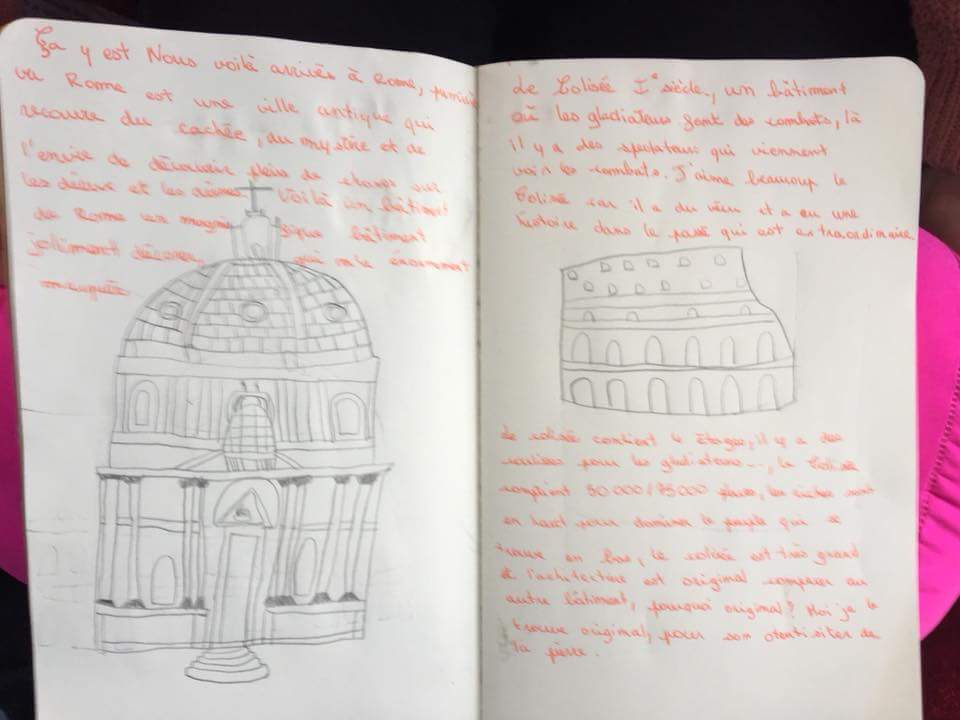 Ça y est Nous voilà arrivés à Rome,
va Rome est une ille antique qui
recouvre du cachée, du mystère et de
l'envie de découvrir pleins de choses sur
les dieux et les déesses Voilà un bâtiment
de Rome un magnifique bâtiment
jolliment décorer, qui m'a énormement
Le Colisée Iᵉ siècle, un bâtiment
où les gladiateurs font des combats, là
il y a des spectateurs qui viennent
voir les combats. J'aime beaucoup le
Colisée car il a du vécu et a eu une
histoire dans le passé qui est extraordinaire
Le colisée contient 4 étages, il y a des
coulisses pour les gladiateurs..., le Colisée
contient 50 000/75 000 places, les riches sont
en haut pour dominer le peuple qui se
trouve en bas, le colisée est très grand
et l'architecture est original comparer au
autre bâtiment, pourquoi original? Moi je le
trouve original, pour son otentisiter de
la pierre.